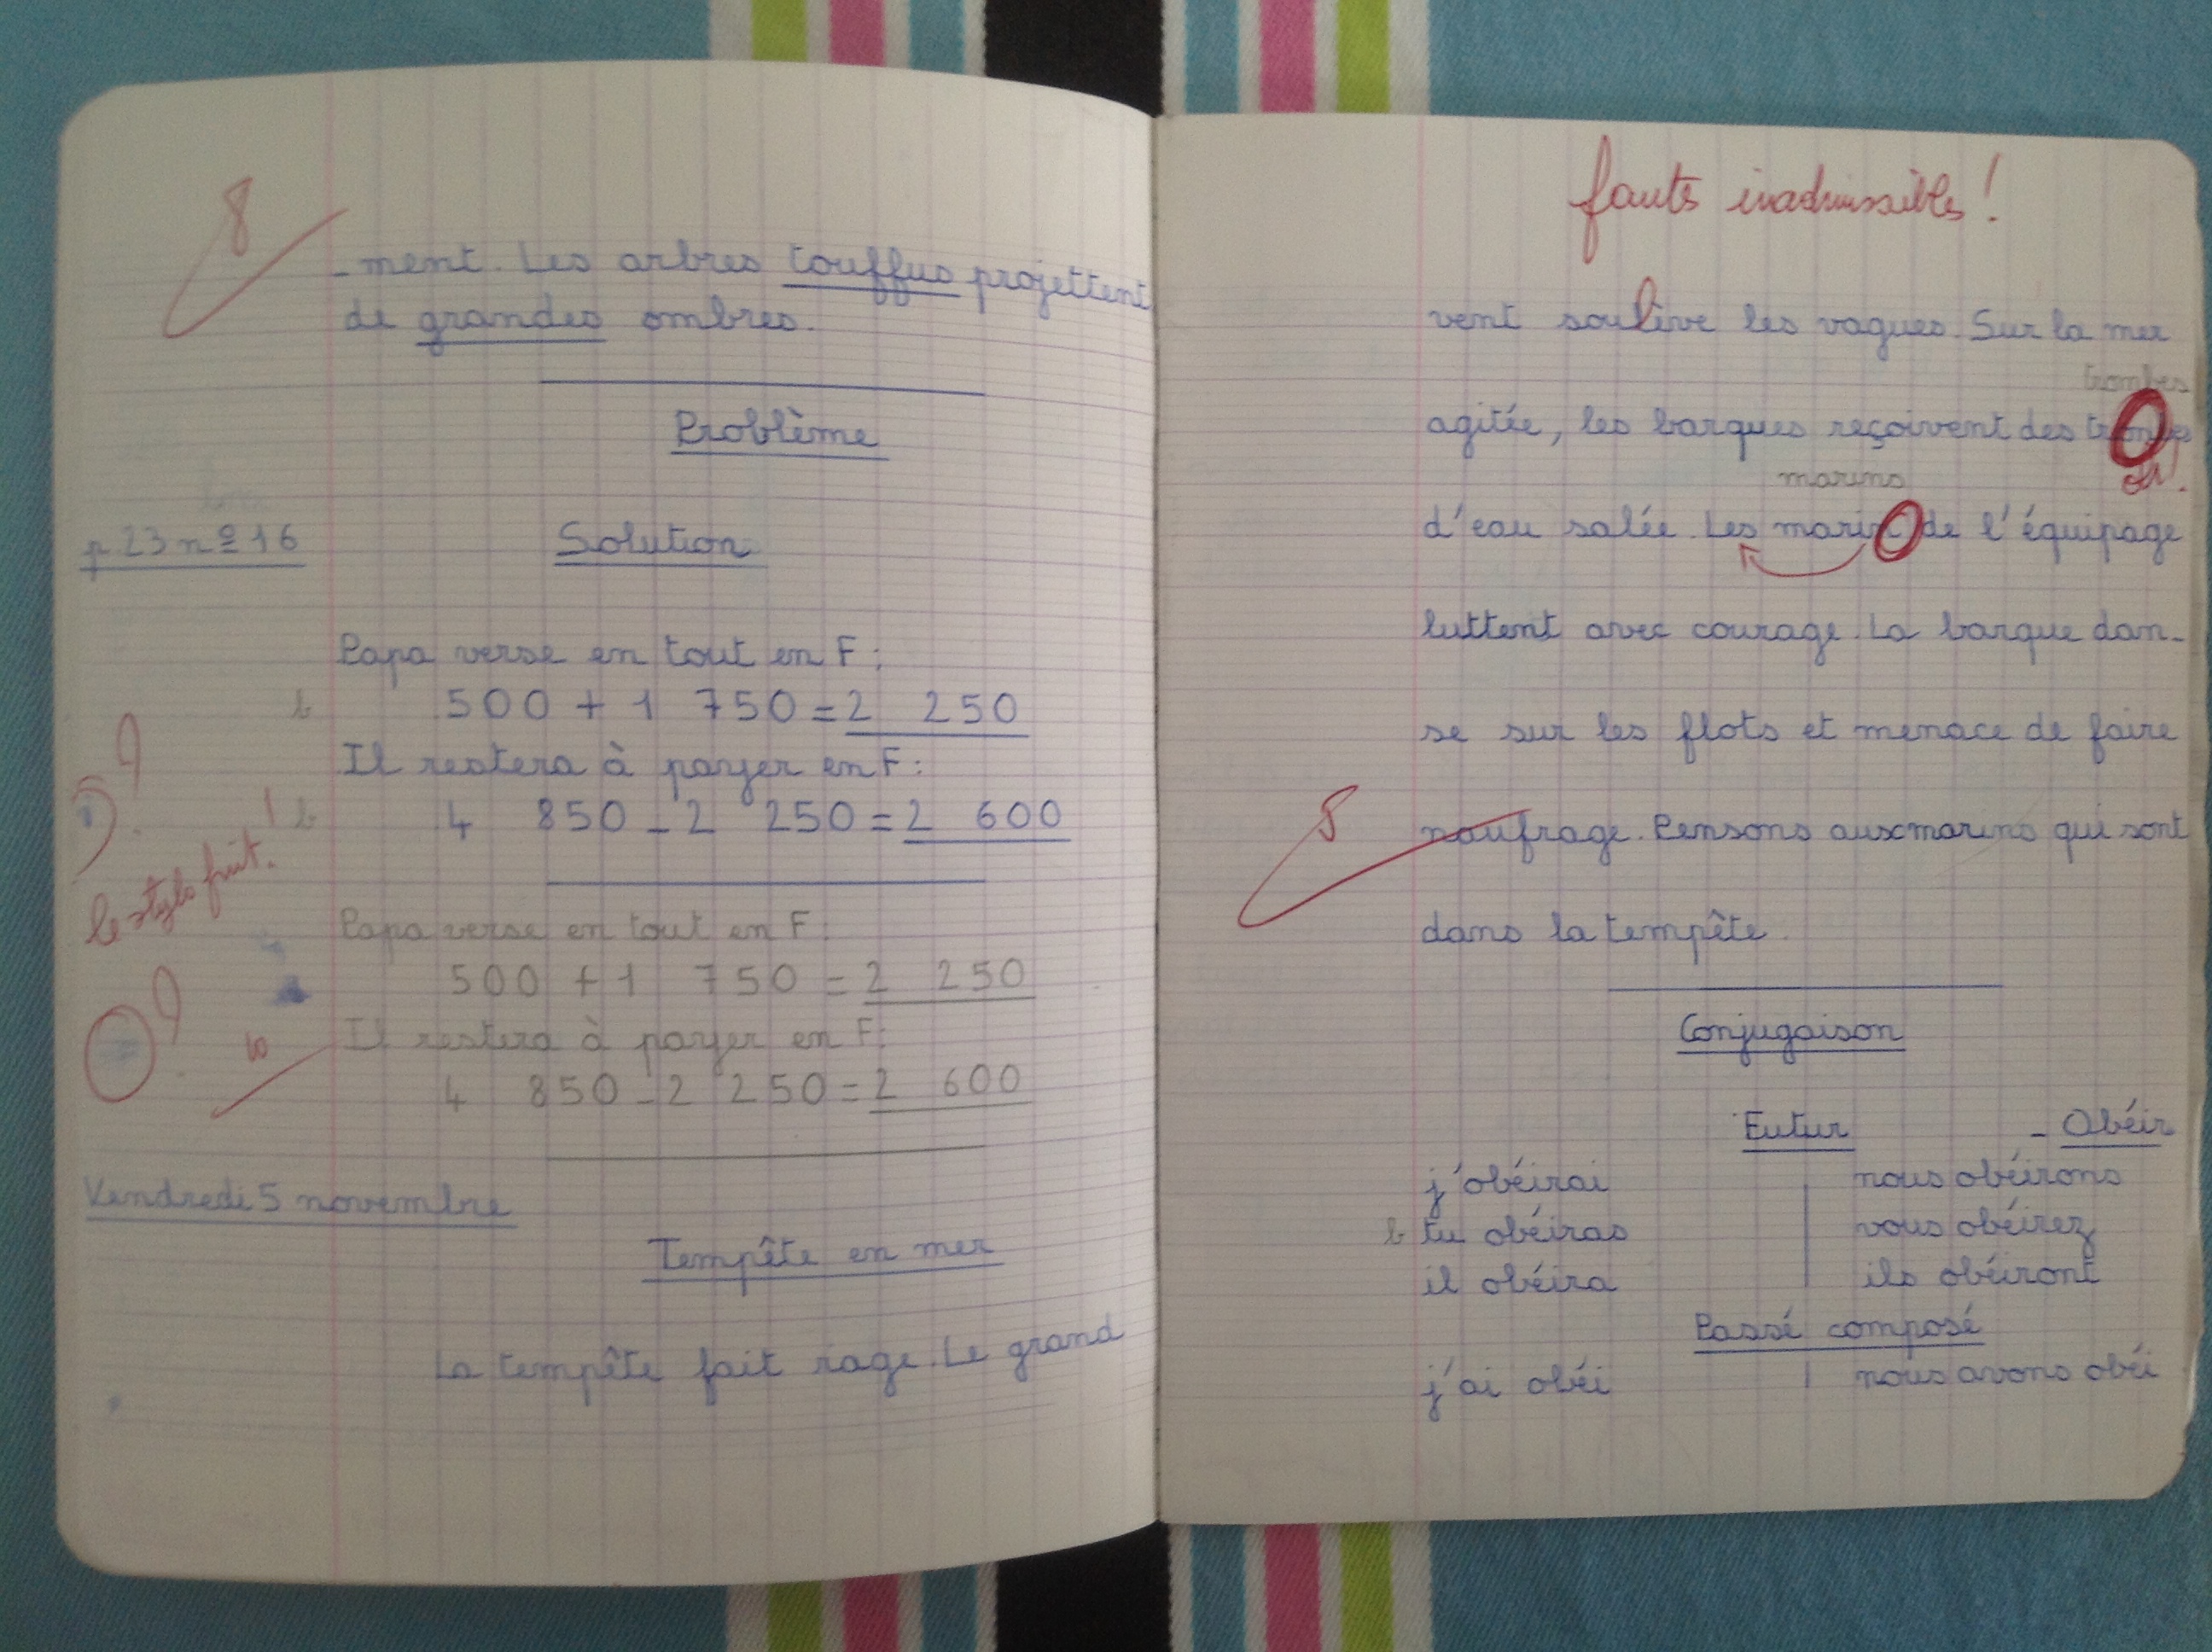 8
-ment. Les arbres touffus projettent
de grandes ombres.
Problème
p 23 n° 16
Solution
Papa verse en tout en F :
500 + 1 750 = 2 250
Il restera à payer en F :
4 850 - 2 250 = 2 600
9
le stylo fuit.
Papa verse en tout en F :
500 + 1 750 = 2 250
Il restera à payer en F :
4 850 - 2 250 = 2 600
9
Vendredi 5 novembre
Tempête en mer
La tempête fait rage. Le grand
faute inadmissible !
vent soulève les vagues. Sur la mer
trombes
agitée, les barques reçoivent des
marins
d'eau salée. Les marin de l'équipage
luttent avec courage. La barque dan-
se sur les flots et menace de faire
naufrage. Pensons aux marins qui sont
8
dans la tempête.
Conjugaison
Futur - Obéir
j'obéirai nous obéirons
tu obéiras vous obéirez
il obéira ils obéiront
Passé composé
j'ai obéi nous avons obéi